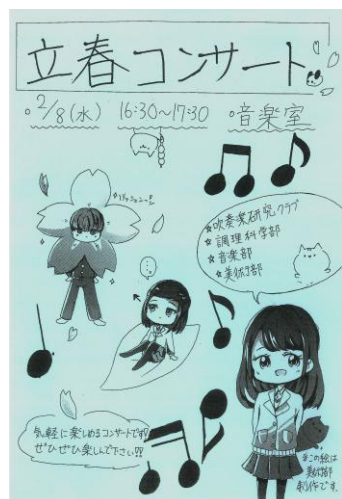 立春コンサート
○2/8(水) 16:30〜17:30 ○音楽室
☆吹奏楽研究クラブ
☆調理科学部
☆音楽部
☆美術部
気軽に楽しめるコンサートです!!
ぜひぜひ楽しんで下さい!!
※この絵は
美術部
制作です。